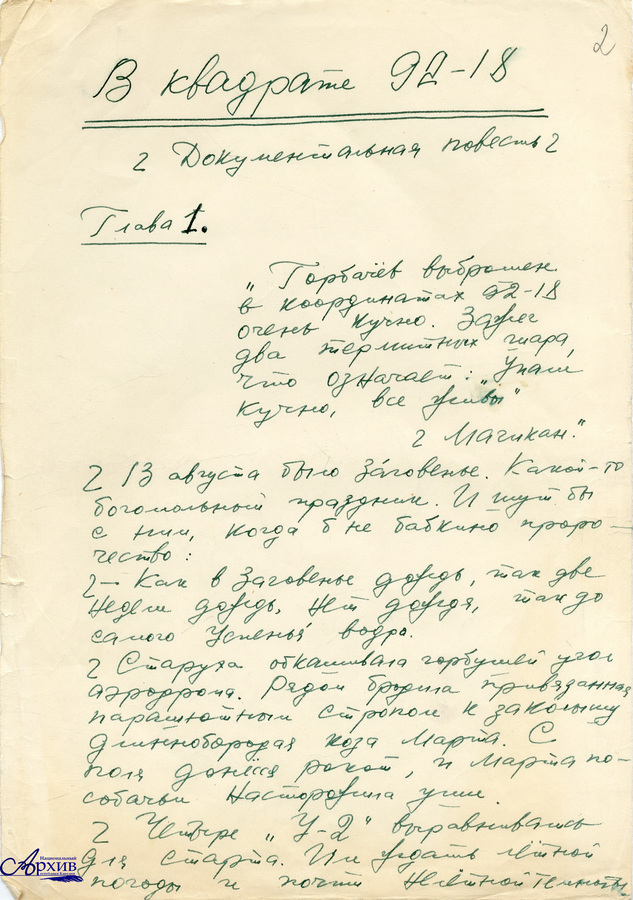 2
В квадрате 92-18
Документальная повесть
Глава 1.
„Горбачёв выброшен
в координатах 92-18
очень кучно. Зажег
два термитных шара,
что означает: „Упали
кучно, все живы"
Магикан."
13 августа было Заговенье. Какой-то
богомольный праздник. И шут бы
с ним, когда б не бабкино проро-
чество:
– Как в Заговенье дождь, так две
недели дождь, нет дождя, так до
самого Успенья вёдро.
Старуха обкашивала горбушей угол
аэродрома. Рядом бродила привязанная
парашютным стропом к заколышу
длиннобородая коза Марта. С
поля донёсся рокот, и Марта по-
собачьи насторожила уши.
Четыре „У-2" выравнивались
для старта. Им ждать лётной
погоды и почти нелётной темноты
Национальный
Архив